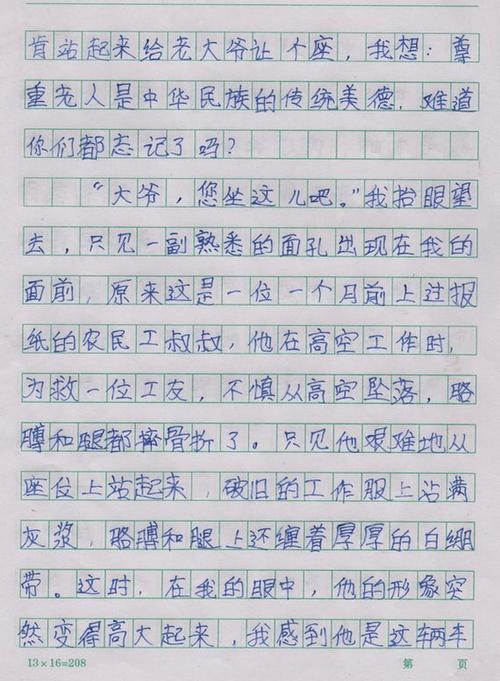 肯站起来给老大爷让个座，我想：尊
重老人是中华民族的传统美德．难道
你们都忘记了吗？
“大爷，您坐这儿吧。”我抬眼望
去，只见一副熟悉的面孔出现在我的
面前，原来这是一位一个月前上过报
纸的农民工叔叔，他在高空工作时，
为救一位工友，不慎从高空坠落，胳
膊和腿都摔骨折了。只见他艰难地从
座位上站起来，破旧的工作服上沾满
灰浆，胳膊和腿上还缠着厚厚的白绷
带。这时，在我的眼中，他的形象突
然变得高大起来，我感到他是这辆车
13×16=208 第 页